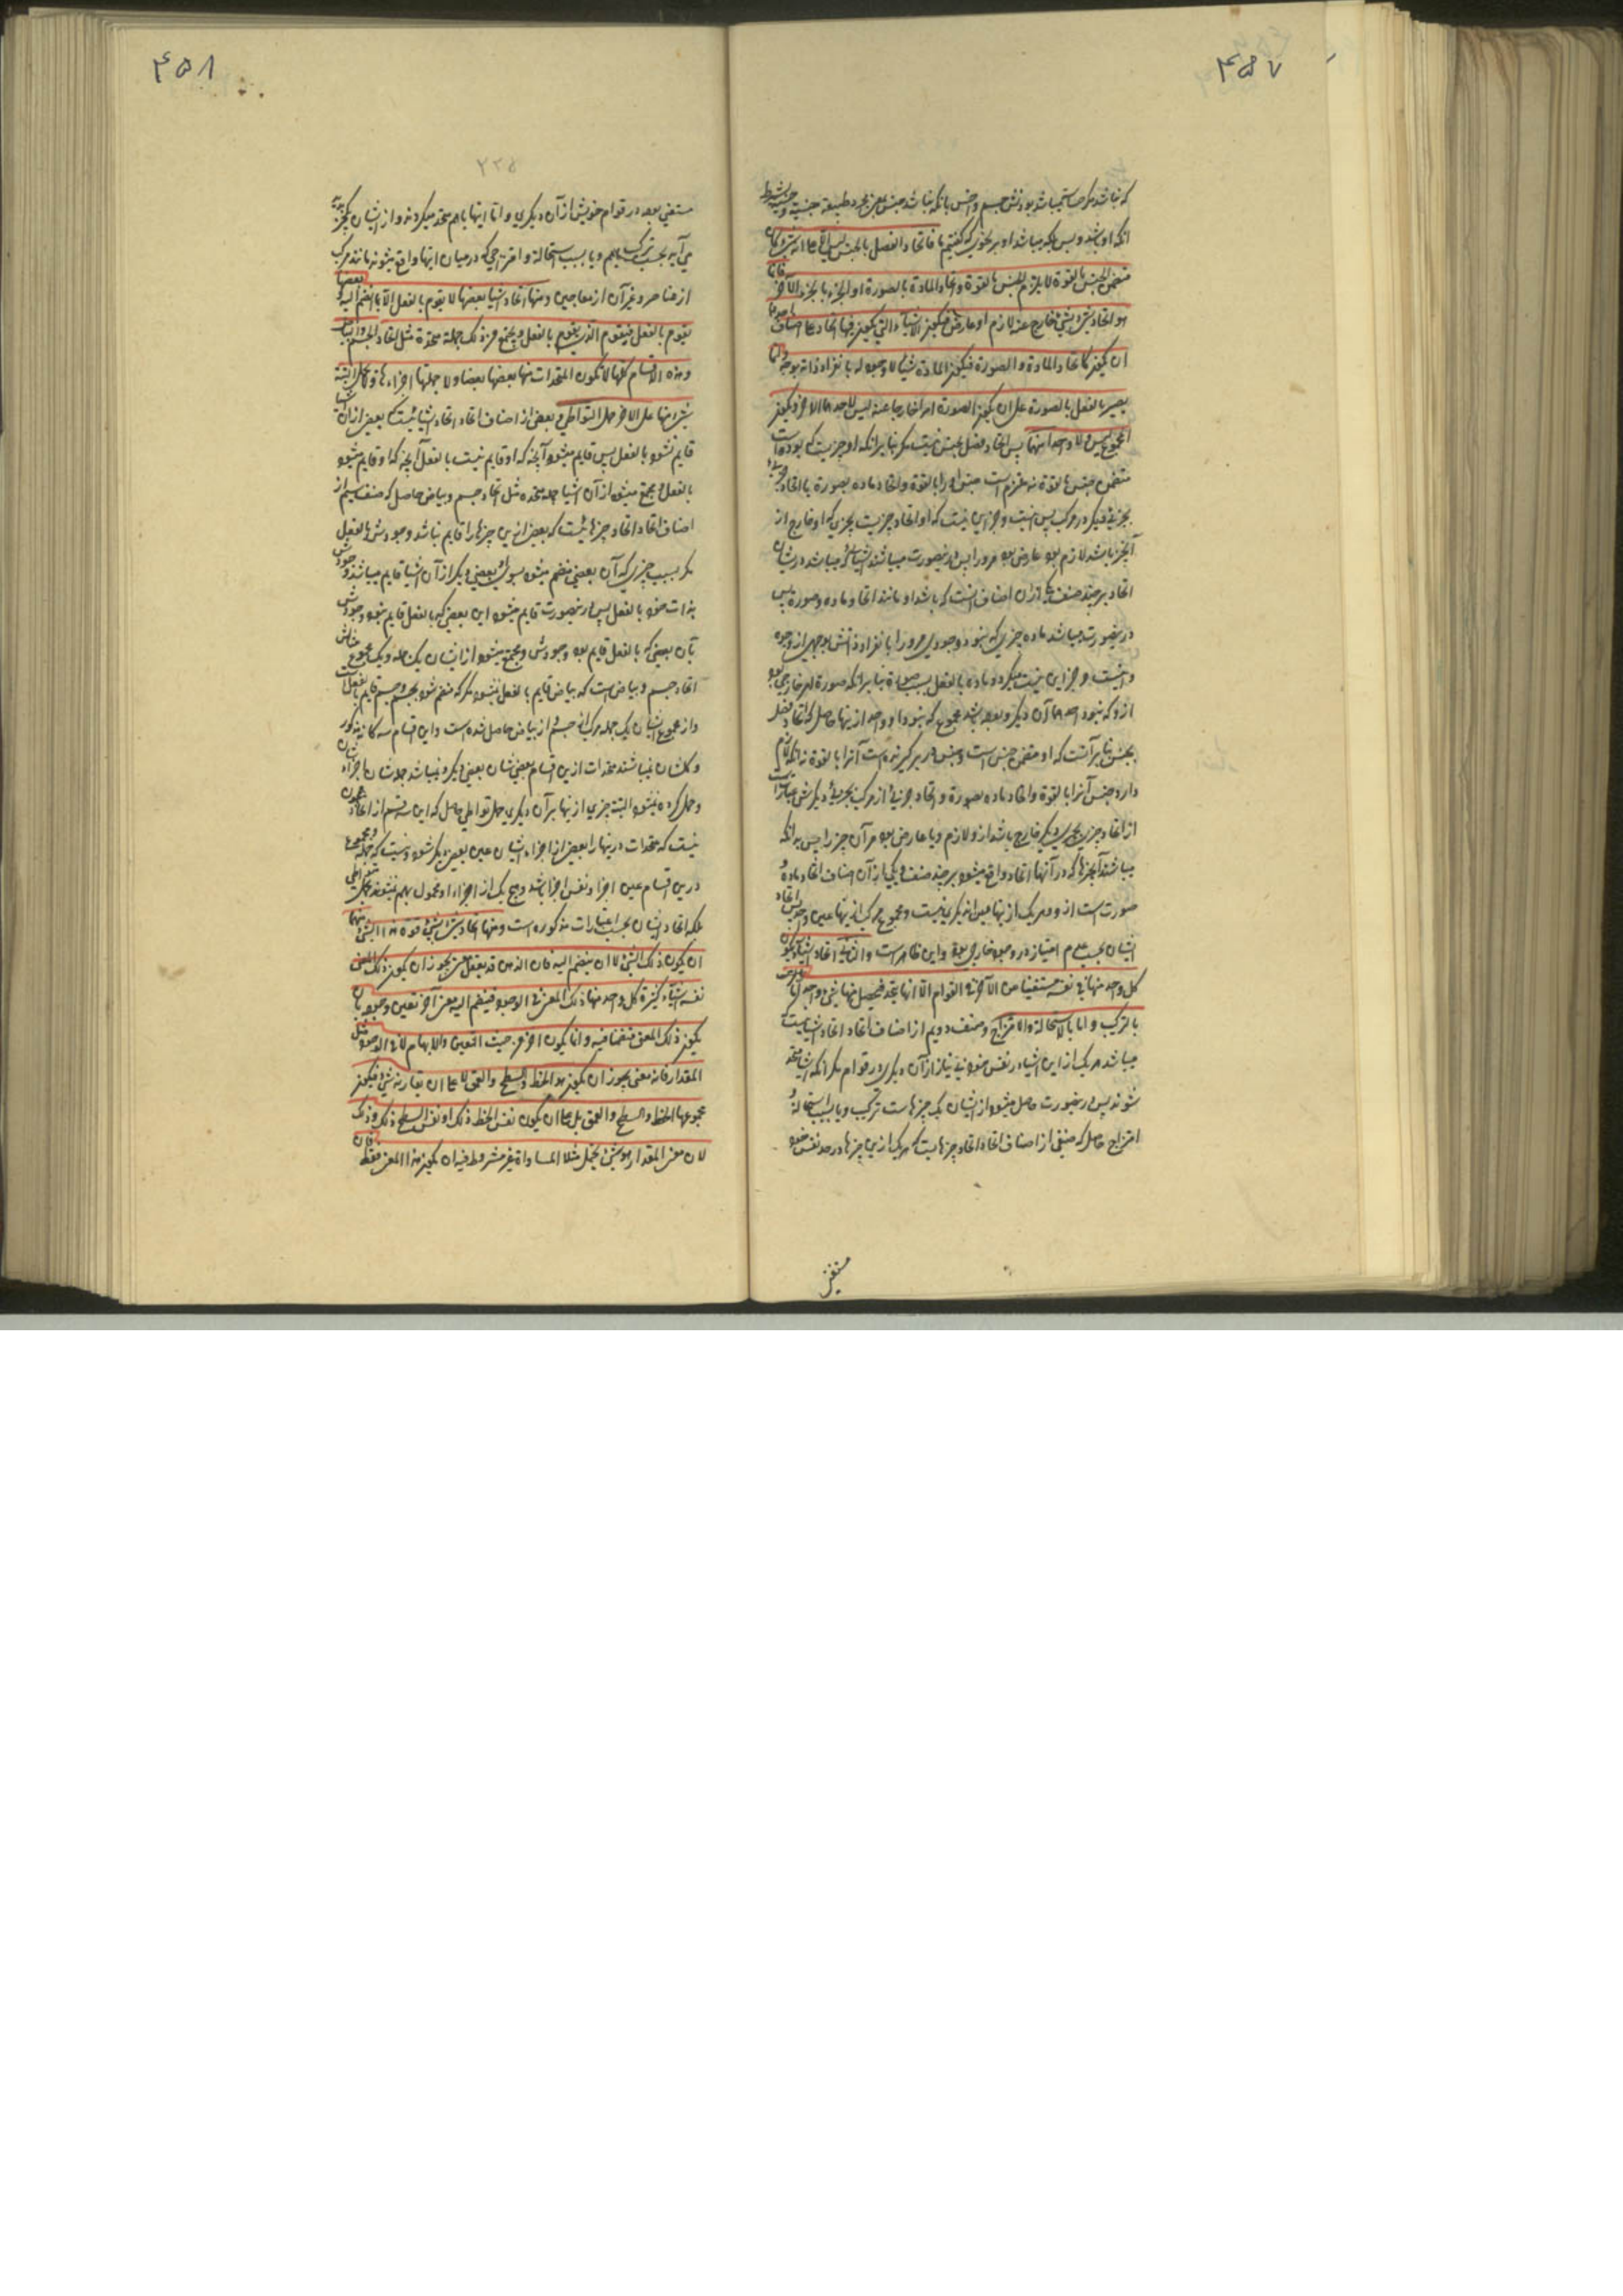 ۴۵۷
که نباشد مکر
انکه او باشد و بس بلکه میباشد او بر نحوی که گفتیم ما فاتحاد الفصل بالجنس لیس الا علی انه شیء کان
متضمن الجنس بالقوة لا یلزم الجنس بالقوة و اتحاد المادة بالصورة او الجزء بالجزء الآخر فانما
هو اتحاد شیء بشیء خارج عنه لازم او عارض فیکون الاشیاء التی یکون فیها اتحاد علی اصناف احدها
ان یکون کاتحاد المادة و الصورة فیکون المادة شیئا لا وجود له بانفراد ذاته بوجه و انما
یصیر بالفعل بالصورة علی ان یکون الصورة امرا خارجا عنه لیس احدهما الآخر و یکون
المجموع لیس و لا واحدا منهما پس اتحاد فصل بجنس نیست مکر بنابر انکه او چیزیست که بوده است
متضمن جنس بالقوة نه ملتزم است جنس او را بالقوة و اتحاد ماده بصورة یا اتحاد
بجزئی دیکر در مرکب پس نیست و جز این نیست که او اتحاد چیزیست بچیزی که او خارج از
آنچیز باشد لازم بود یا عارض بود مرو را پس درینصورت میباشند اشیائی که میباشد در ایشان
اتحاد بر چند صنف یکی از آن اصناف انست که باشد او مانند اتحاد ماده و صورة پس
درینصورت میباشد ماده چیزی که نبود وجودی مرو را بانفراد ذاتش بوجهی از وجوه
و نیست و جز این نیست میکردد ماده بالفعل بسبب صورة بنابر انکه صورة امر خارجی بود
ازو که نبود احدهما آن دیکر و بوده باشد مجموع که نبود او واحد ازینها حاصل که اتحاد فصل
بجنس بنابر آنست که او متضمن جنس است و جنس در بر کیرنده است آنرا بالقوة نه انکه لازم
دارد جنس آنرا بالقوة و اتحاد ماده بصورة و اتحاد جزئی از مرکب بجزئی دیکرش عبارتست
از اتحاد چیزی بچیزی دیکر خارج باشد ازو لازم و یا عارض بود مر آن چیز را پس بدانکه
میباشد آنچیزها که در آنها اتحاد واقع میشود بر چند صنف یکی از آن اصناف اتحاد ماده و
صورت است ازو و هر یک از ینها عین آن دیکری نیست و مجموع مرکب از ینها عین واحد اتحاد
ایشان بحسب عدم امتیاز در وجود خارجی بود و این ظاهر است و الثانی اتحاد اشیاء یکون
کل واحد منها فی نفسه مستغنیا عن الآخر فی القوام الا انها یتحد فیحصل منها شیء واحد اما
بالترکیب و اما بالاستحالة و الامتزاج و صنف دویم از اصناف اتحاد اتحاد اشیائیست
میباشد هر یک از این اشیاء در نفس خود بی نیاز از آن دیکری در قوام مکر انکه اشیا متحد
شوند پس درینصورت حاصل میشود از ایشان یک چیز بترکیب و یا بسبب استحالة و
امتزاج حاصل که صنفی از اصناف اتحاد اتحاد چیزهاییست که هر یک ازین چیزها در حد نفس خود
مستغنی
۴۵۸
۲۲۵
مستغنی بود در قوام خویش از آن دیکری و اما اینها باهم متحد میکردند و از ایشان یکچیز
می آید بحسب ترکیب باهم و یا بسبب استحالة و امتزاجی که در میان اینها واقع میشود مانند مرکب
از عناصر و غیر آن از معاجین و منها اتحاد اشیا بعضها لا یقوم بالفعل الا بما انضم الیه و بعضها
یقوم بالفعل فیتقوم الذی لا یقوم بالفعل و یجتمع من ذلک جملة متحدة مثل اتحاد الجسم و البیاض
و هذه الاقسام کلها لا یکون المتحدات منها بعضها بعضا و لا جملتها اجزاءها و لا یحمل البتة
شیء منها علی الآخر حمل التواطی و بعضی از اصناف اتحاد اتحاد اشیائیست که بعضی از آن اشیا
قایم نشود بالفعل پس قایم میشود آنچه که او قایم نیست بالفعل آنچه که او قایم میشود
بالفعل و مجتمع میشود از آن اشیا جمله متحده مثل اتحاد جسم و بیاض حاصل که صنف سیم از
اصناف اتحاد اتحاد چیزهائیست که بعض ازین چیزها را قایم نباشد وجودش بالفعل
مکر بسبب چیزی که آن بعضی منضم میشود بسوی او و بعضی دیکر از آن اشیا قایم میباشد وجودش
بذات خود بالفعل پس درینصورت قایم میشود این بعضی که بالفعل قایم نبود وجودش
بآن بعضی که بالفعل قایم بود وجودش و مجتمع میشود از ایشان یک جمله و یک مجموع مثالش
اتحاد جسم و بیاض است که بیاض قایم بالفعل نمیشود مکر که منضم شود بجسم و جسم قایم بالفعل است
و از مجموع ایشان یک جمله مرکب از جسم و از بیاض حاصل شده است و این اقسام سه کانه مذکوره
و کلشان نمیباشند متحدات ازین اقسام بعضی شان بعضی دیکر و نمیباشد جمله شان اجزاء شان
و حمل کرده نمیشود البته چیزی ازینها بر آن دیکری حمل تواطی حاصل که این سه قسم از اتحاد چون
نیست که متحدات درینها را بعض از اجزاء ایشان عین بعض دیکر شود و نیست که جمله و مجموع
درین اقسام عین اجزا و نفس اجزا باشد و هیچ یک از اجزاء او محمول بهم نمیشوند بحمل تواطی
بلکه اتحاد ایشان بحسب اعتبارات مذکوره است و منها اتحاد شیء بشیء قوة هذا الشیء منهما
ان یکون ذلک الشیء لا ان ینضم الیه فان الذهن قد یعقل معنی یجوز ان یکون ذلک المعنی
نفسه اشیاء کثیرة کل واحد منها ذلک المعنی فی الوجود فینضم الیه معنی آخر تعین وجوده بان
یکون ذلک المعنی متضمنا فیه و انما یکون آخر من حیث التعین و الابهام لا فی الوجود مثل
المقدار فانه معنی یجوز ان یکون هو الخط و السطح و العمق لا علی ان یقارنه شیء فیکون
مجموعهما الخط و السطح و العمق بل علی ان یکون نفس الخط ذلک او نفس السطح ذلک و ذلک
لان معنی المقدار هو شیء یحتمل مثلا المساواة غیر مشروط فیه ان یکون هذا المعنی فقط فان